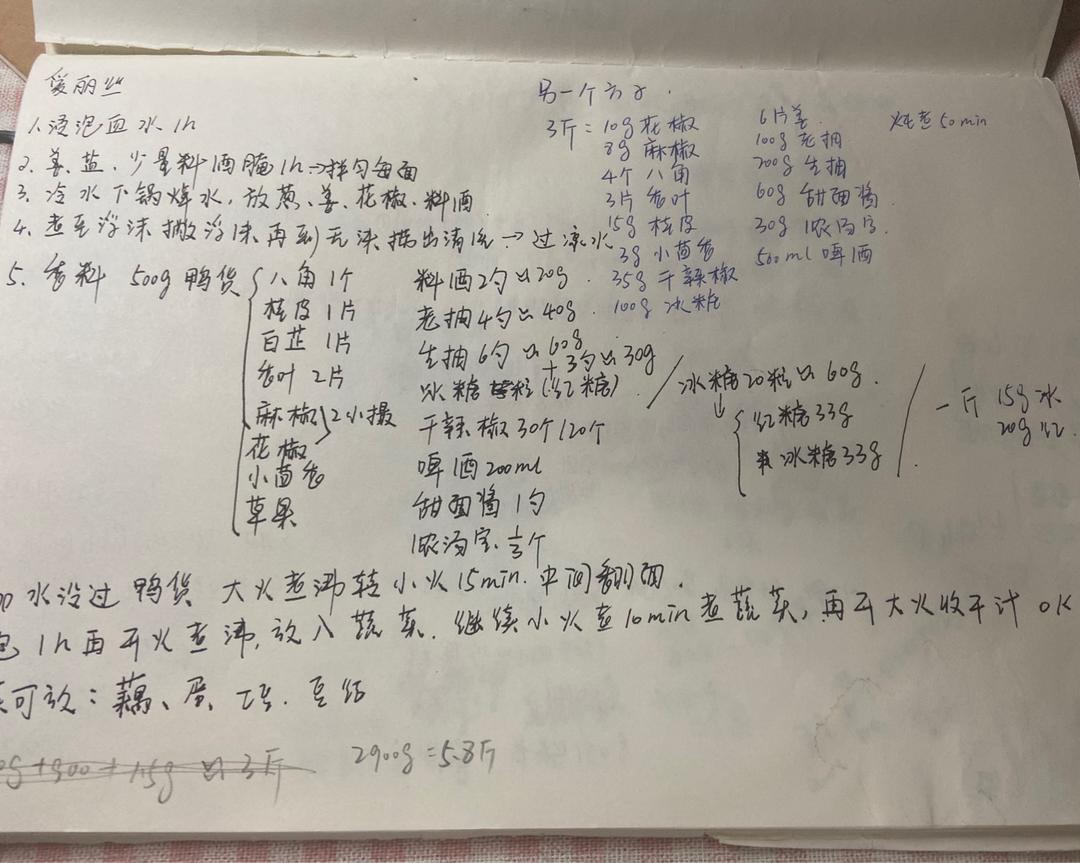 爱丽丝
1. 浸泡血水1h
2. 姜、盐、少量料酒腌1h→拌匀每面
3. 冷水下锅焯水,放葱、姜、花椒、料酒
4. 煮至浮沫撇浮沫再到无沫捞出清洗→过凉水
5. 香料 500g鸭货
八角1个
桂皮1片
白芷1片
香叶2片
麻椒 2小撮
花椒
小茴香
草果
料酒2勺≈20g
老抽4勺≈40g
生抽6勺≈60g
+3勺≈30g
冰糖 (红糖)
干辣椒30个/20个
啤酒200ml
甜面酱1勺
浓汤宝 1/3个
冰糖20粒≈60g
↓
红糖33g
冰糖33g
一斤 15g冰
20g红
另一个方子
3斤=10g花椒
8g麻椒
4个八角
3片香叶
15g桂皮
3g小茴香
35g干辣椒
100g冰糖
6片姜
100g老抽
200g生抽
60g甜面酱
30g浓汤宝
500ml啤酒
炖煮50min
水没过鸭货 大火煮沸转小火15min. 中间翻面.
1h再开火煮沸,放入蔬菜. 继续小火煮10min煮蔬菜,再开大火收干汁 OK
可放:藕、蛋、 豆结
g+900+1.5g≈3斤
2900g=5.8斤